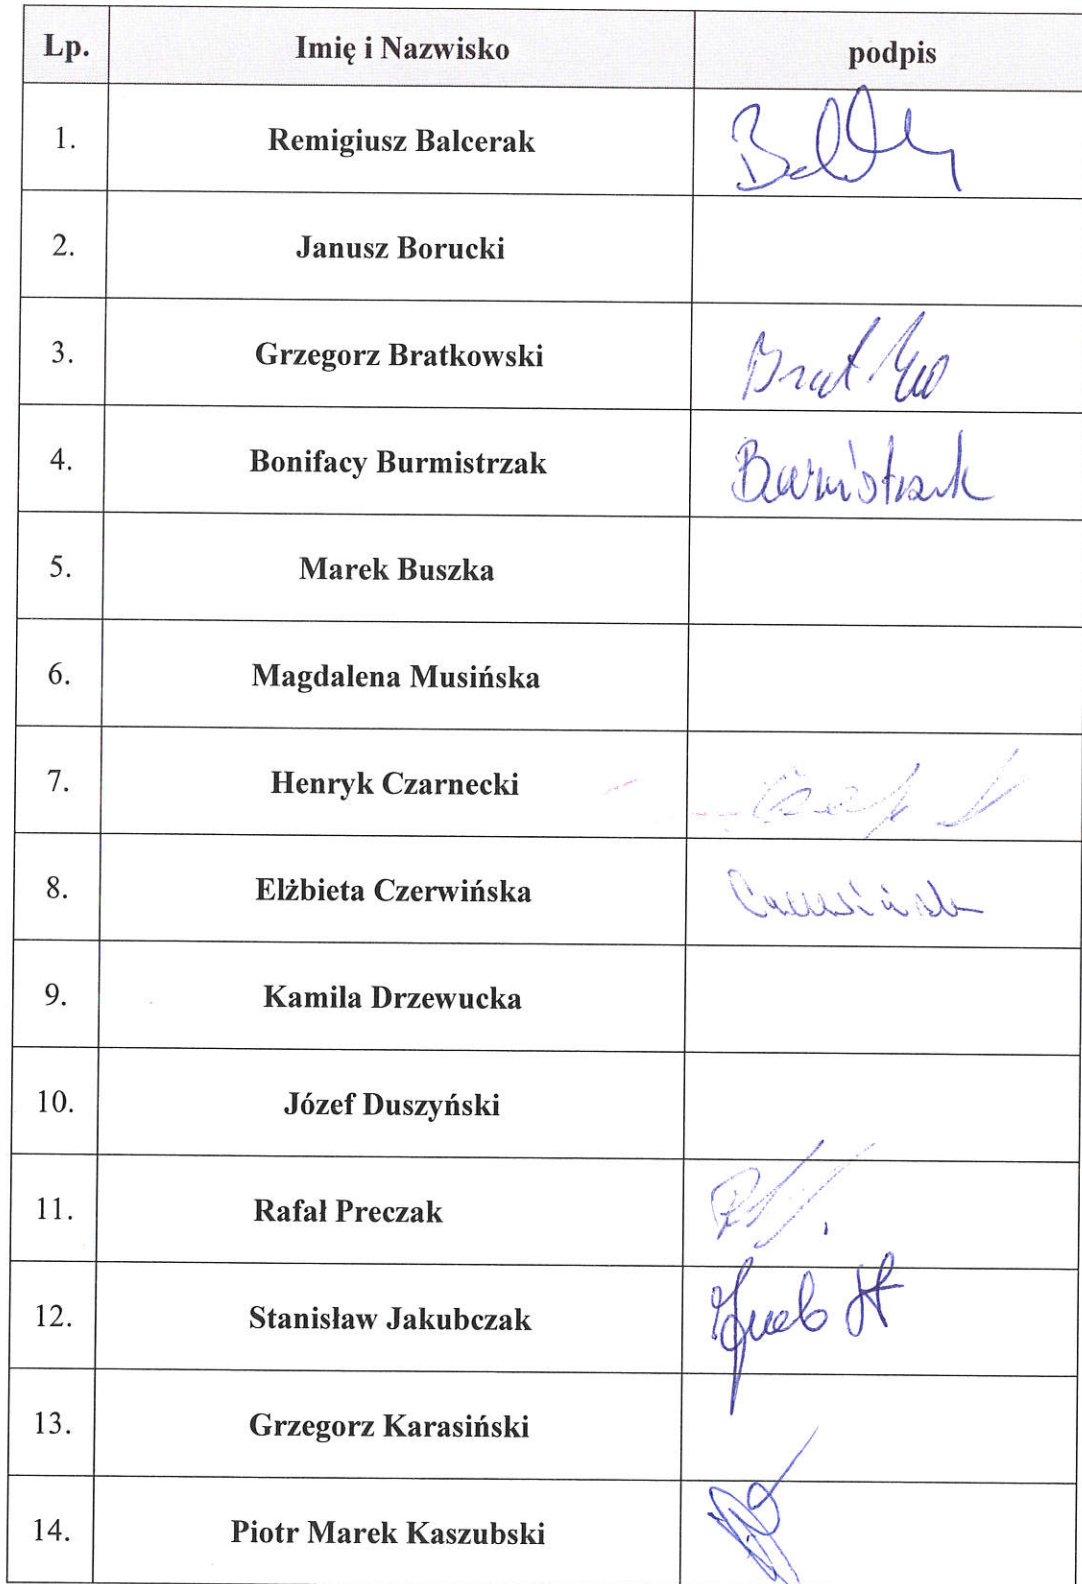 Lp. Imię i Nazwisko podpis
1. Remigiusz Balcerak
2. Janusz Borucki
3. Grzegorz Bratkowski
4. Bonifacy Burmistrzak Burmistrzak
5. Marek Buszka
6. Magdalena Musińska
7. Henryk Czarnecki
8. Elżbieta Czerwińska
9. Kamila Drzewucka
10. Józef Duszyński
11. Rafał Preczak
12. Stanisław Jakubczak
13. Grzegorz Karasiński
14. Piotr Marek Kaszubski